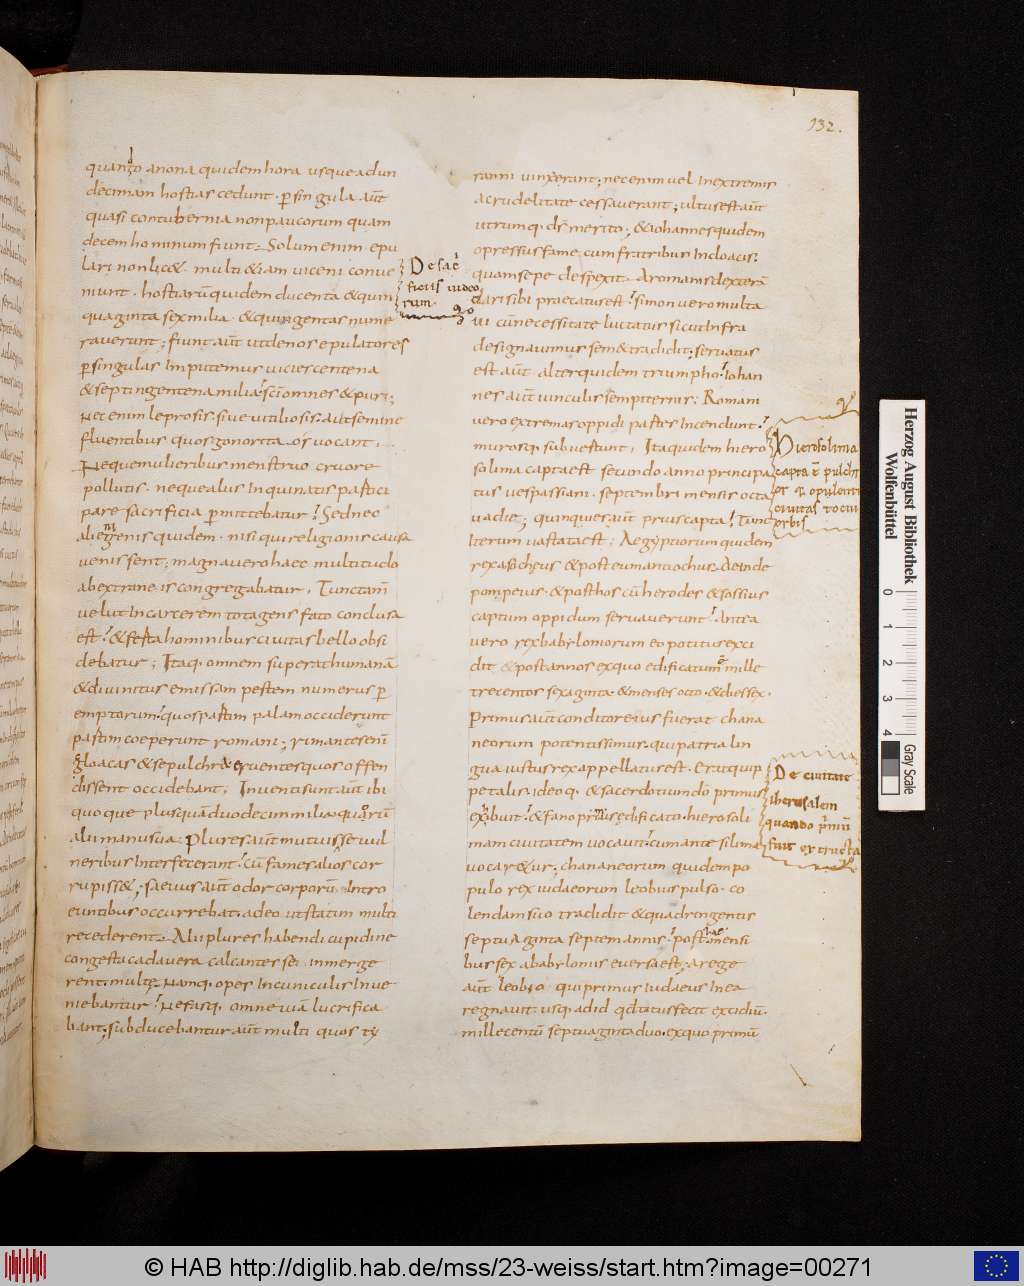 132.
quando anona quidem hora usque ad un
decimam hostias cedunt · p singula aut
quasi contubernia non paucorum quam
decem hominum fiunt · Solum enim epu
lari non lic& · multi &iam viceni conve
niunt · hostiarū quidem ducenta & quin
quaginta sex milia · & quingentas nume
raverunt ; fiunt aut ut denos epulatores
p singulas inputemus vicies centena
& septingentena milia · sci omnes & puri ;
Nec enim leprosis · sive vitiliosis · aut semine
fluentibus quos gonorrea os vocant ·
Neque mulieribus menstruo cruore
pollutis · neque aliis inquinatis partici
pare sacrificia p mittebatur · Sed nec
alienigenis quidem · nisi qui religionis causa
venissent ; magna vero haec multitudo
ab extraneis congregabatur · Tunc tam
velut in carcerem tota gens fato conclusa
est · & ferta hominibus civitas bello obsi
debatur ; Itaq · omnem superat humanā
& divinitus emissam pestem numerus p
emptorum · quos partim palam occiderunt
partim coeperunt romani ; rimantes eni
cloacas & sepulchra eruentes quos offen
dissent occidebant ; Inventi sunt aut ibi
quoque plus quā duodecim milia · quorū
alii manu sua · Plures aut mutuis se vul
neribus interfecerant · cū fames alios cor
rupiss& ; saevus aut odor corporū · intro
euntibus occurrebat · adeo ut statim multi
recederent · Alii plures habendi cupidine
congesta cadavera calcantes se inmerge
rent · multę namq · opes in cuniculis inve
niebantur · Nefasq · omne viā lucri fica
bant ; subducebantur aut multi quos ty
De sacri
ficiis iudeo
rum
ranni vinxerant ; nec enim vel in extremis
a crudelitate cessaverant ; ultus est aut
utrumq · ds merito ; & iohannes quidem
opressus fame cum fratribus in cloacis ·
quam sepe despexit · a romanis dexterā
dari sibi praecatus est · simon vero multa
vi cū necessitate luctatur sicut infra
designavimus sem& tradidit ; servatus
est aut alter quidem triumpho · iohan
nes aut vinculis sempiternis ; Romani
vero extremas oppidi partes incendunt ·
murosq · subvertunt ; Ita quidem hiero
solima capta est secundo anno principa
tus vespassiani · septembri mensis octa
va die ; quinquies aut prius capta · Tunc
iterum vastata est ; Aegyptiorum quidem
rex asocheus & post eum antiochus · deinde
pompeius · & post hos cū herodes & sossius
captum oppidum servaverunt · Antea
vero rex babylomorum eo potitus exci
dit & post annos ex quo edificatum ē mille
trecentos sexaginta · & menses octo · & dies sex ·
Primus aut conditor eius fuerat chana
neorum potentissimus · qui patria lin
gua iustus rex appellatus est · Erat quip
pe talis · ideoq · & sacerdotium dō primus
exhibuit · & fano primus edificato · hierosoli
mam civitatem vocavit · cum ante silima
vocar&ur ; chananeorum quidem po
pulo rex iudaeorum leobius pulso · co
lendam suo tradidit & quadringentis
septuaginta septem annis · post hae mensi
bus sex a babylonis eversa est ; a rege
aut leobio qui primus iudaeus in ea
regnavit · usq · ad id qd titus fecit excidiū ·
mille centū septuaginta duo · ex quo primū
Hierosolima
capta ē pulchr
or & opulenti
civitas tociu
orbis
De civitate
iherusalem
quando primū
fuit extructa
Herzog August Bibliothek
Wolfenbüttel
0 1 2 3 4
Gray Scale
© HAB http://diglib.hab.de/mss/23-weiss/start.htm?image=00271